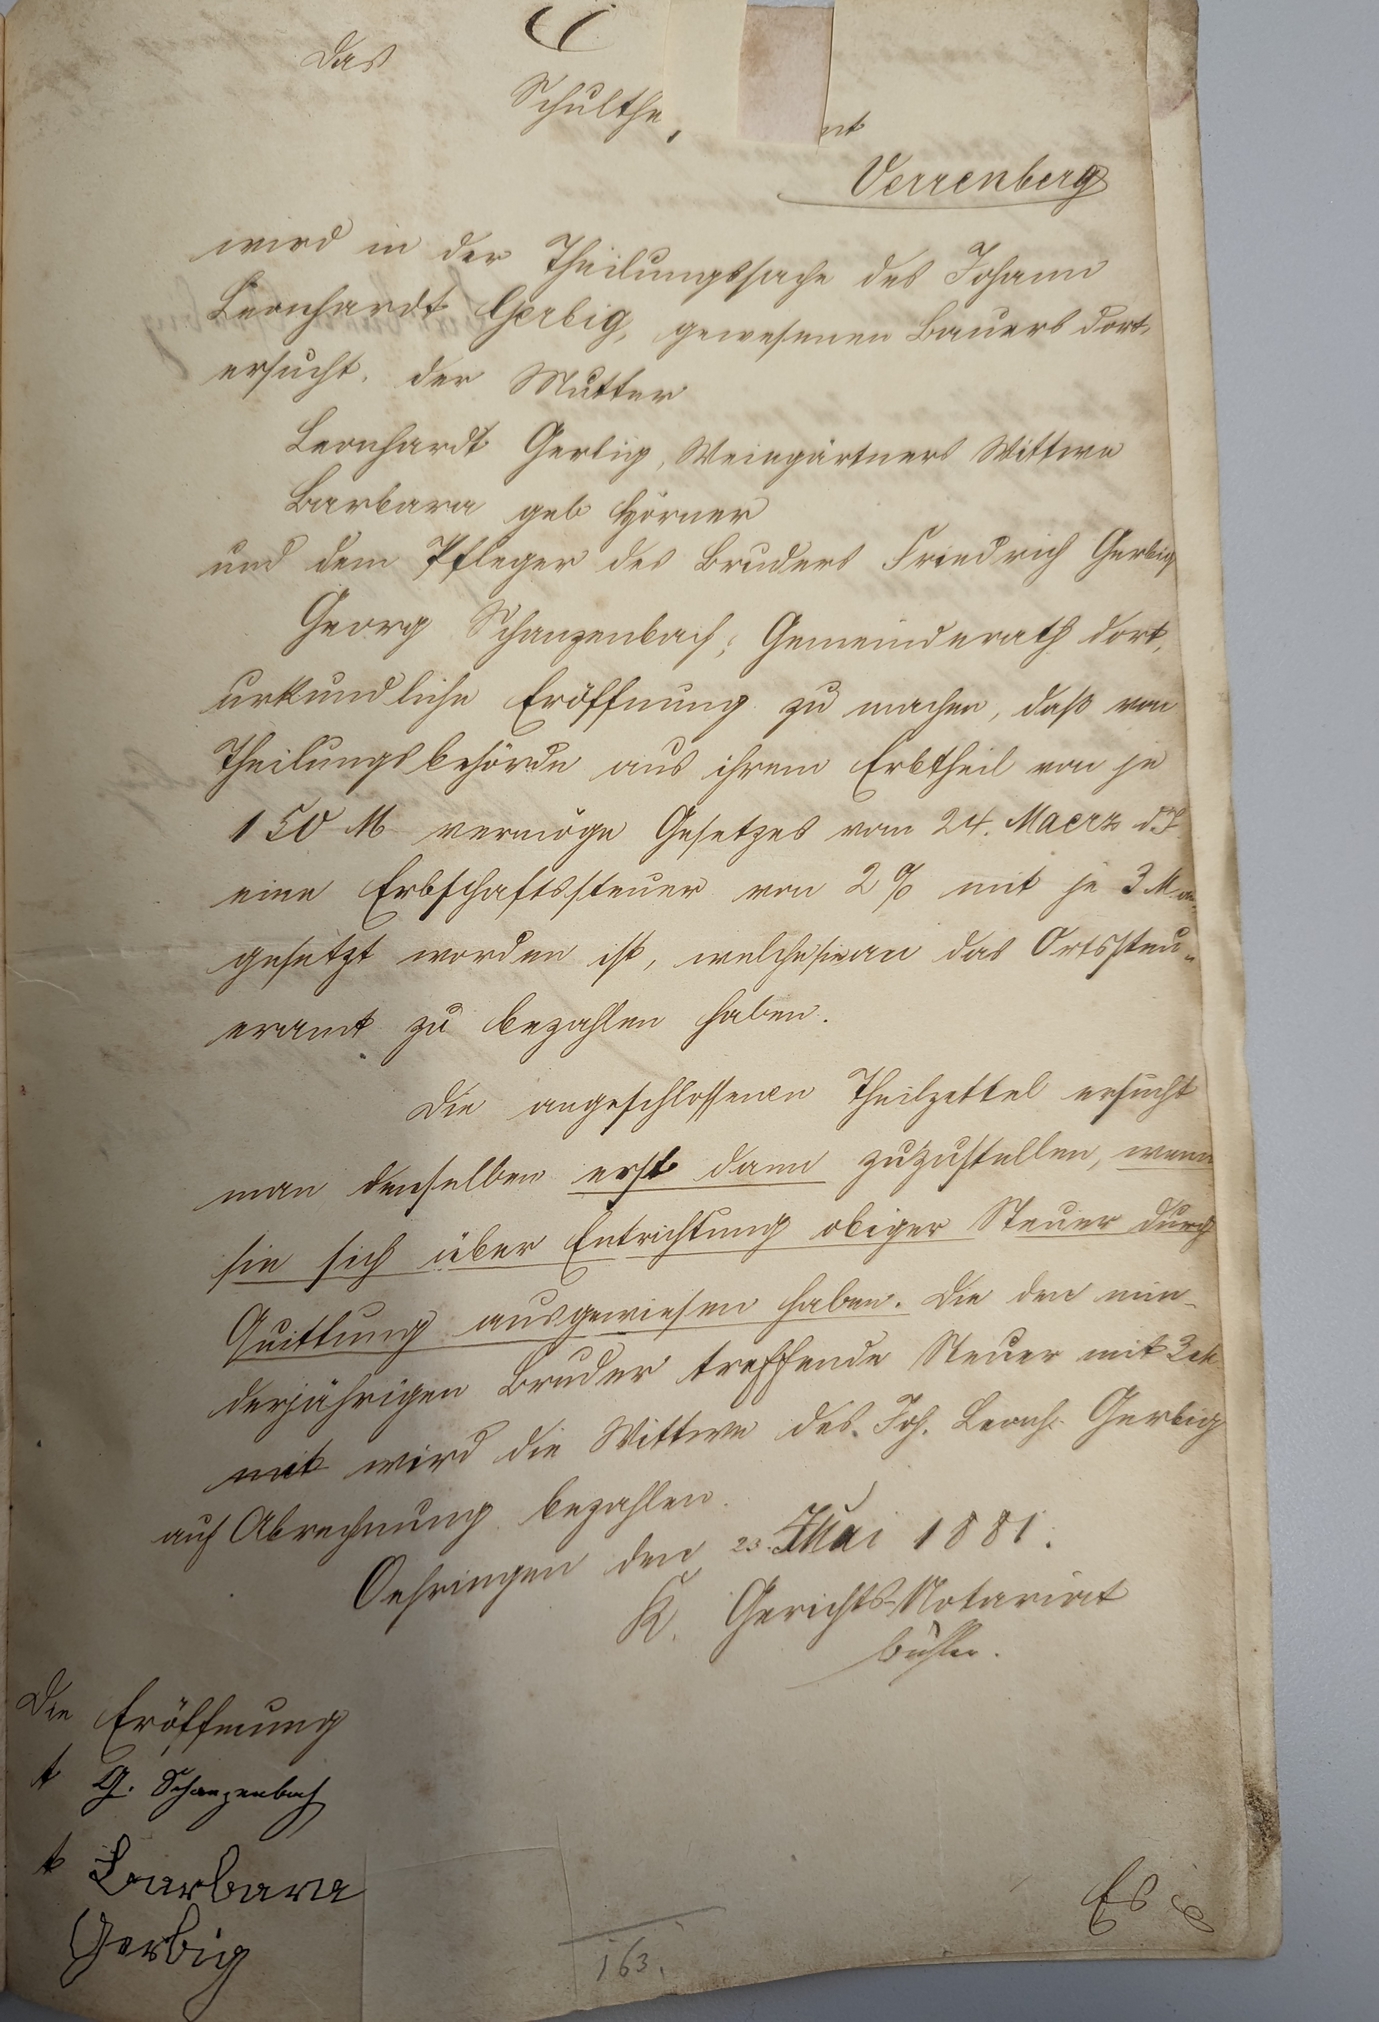 Das
Schulthe nt
Verrenberg
wird in der Theilungssache des Johann
Leonhardt Gerbig, gewesenen Bauers dort,
ersucht, der Mutter
Leonhardt Gerbig, Weingärtners Wittwe
Barbara geb Hörner
und dem Pfleger des Bruders Friedrich Gerbig
Georg Schanzenbach, Gemeinderath dort,
urkundliche Eröffnung zu machen, daß von
Theilungsbehörde aus ihrem Erbtheil von je
150 M vermöge Gesetzes vom 24. Maerz d.J.
eine Erbschaftssteuer von 2 % mit je 3 M. an-
gesetzt worden ist, welche sie an das Ortssteu-
eramt zu bezahlen haben.
Die angeschlossenen Theilzettel ersucht
man denselben erst dann zuzustellen, wenn
sie sich über Entrichtung obiger Steuer durch
Quittung ausgewiesen haben. Die den min-
derjährigen Bruder treffende Steuer mit 3 M
mit wird die Wittwe des Joh. Leonh. Gerbig
auf Abrechnung bezahlen.
Oehringen den 23. Mai 1881.
K. Gerichts-Notariat
Bühler.
Die Eröffnung
t G. Schanzenbach
t Barbara
Gerbig
Es
163.